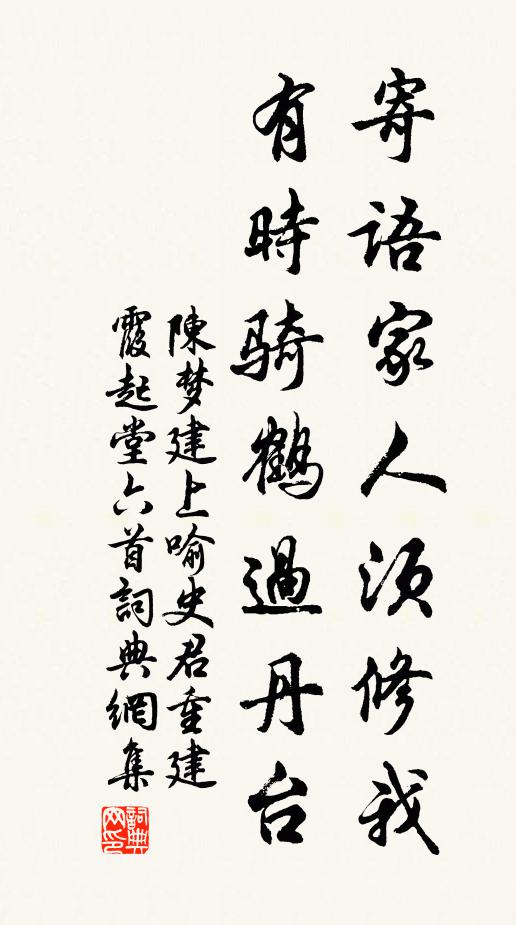 寄語家人須修我
有時騎鶴過丹台
陳梦建上喻史君重建
霞起堂六首詞典網集
詞典网印